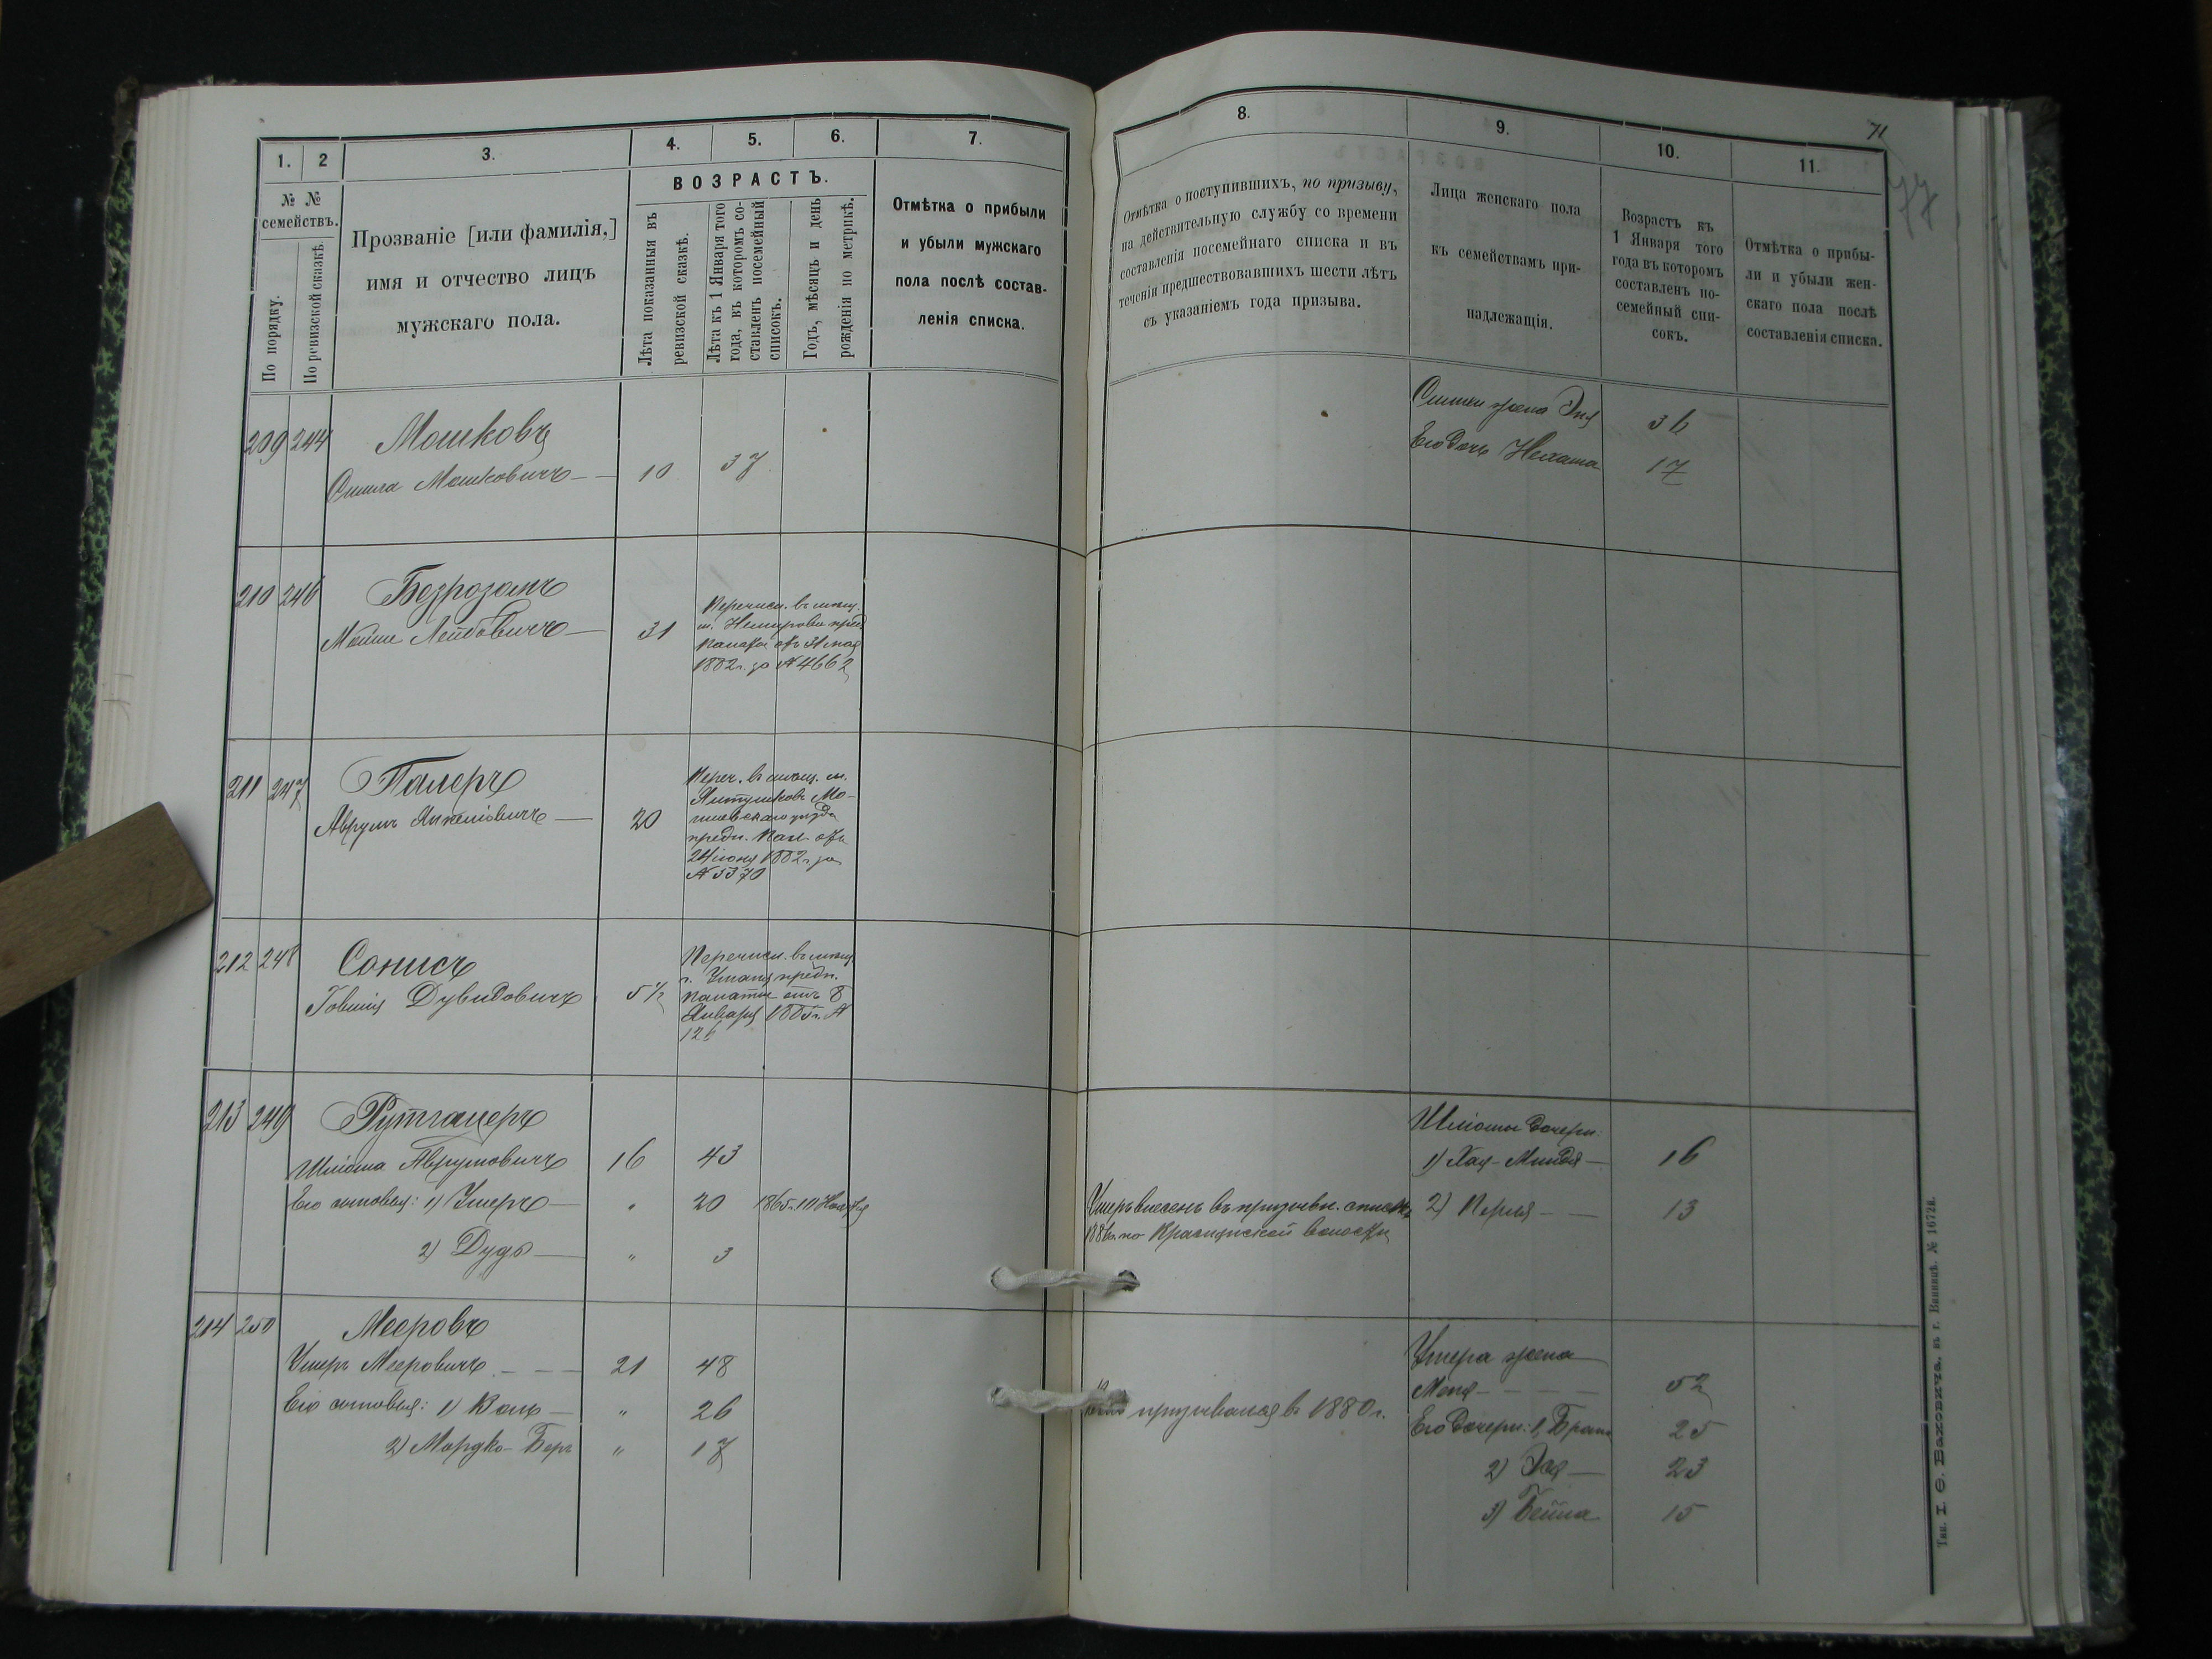 1.
2
3.
4.
5.
6.
7.
№ №
семействъ.
По порядку.
По ревизской сказкѣ.
Прозваніе [или фамилія,]
имя и отчество лицъ
мужскаго пола.
ВОЗРАСТЪ.
Лѣта показанныя въ
ревизской сказкѣ.
Лѣта къ 1 Января того
года, въ которомъ со-
ставленъ посемейный
списокъ.
Годъ, мѣсяцъ и день
рожденія по метрикѣ.
Отмѣтка о прибыли
и убыли мужскаго
пола послѣ состав-
ленія списка.
209 244 Мошковъ
Мошковичъ 10 37
210 246
Лейбовичъ 31
Перечисл. въ мѣщ.
м. Немирова пред.
Палаты отъ 31 мая
1882 г. за № 4662
211 247 Палеръ
Аврумъ 20
Переч. въ мѣщ. м.
Ялтушковъ Мо-
гилевскаго уѣзда
предп. Пал. отъ
24 іюня 1882 г. за
№ 5370
212 248 Сонисъ
Дувидовичъ 5½
Перечисл. въ мѣщ.
г. Уманя предп.
палаты отъ 8
Января 1885 г. №
126
213 249
Шліома Аврумовичъ 16 43
Его сыновья: 1) Ушеръ " 20 1865 г. 10 Ноября
2) Дудъ " 3
214 250 Мееровъ
Ушеръ Мееровичъ 21 48
Его сыновья: 1) " 26
2) Мордко-Беръ " 17
71
77
8.
9.
10.
11.
Отмѣтка о поступившихъ, по призыву,
на дѣйствительную службу со времени
составленія посемейнаго списка и въ
теченіи предшествовавшихъ шести лѣтъ
съ указаніемъ года призыва.
Лица женскаго пола
къ семействамъ при-
надлежащія.
Возрастъ къ
1 Января того
года въ которомъ
составленъ по-
семейный спи-
сокъ.
Отмѣтка о прибы-
ли и убыли жен-
скаго пола послѣ
составленія списка.
жена 36
Его дочь Нехама 17
Шліомы дочери:
1) Хая-Миндя 16
Ушеръ внесенъ въ призывн. списокъ
2) Перля 13
1886 г. по Краснянской волости
Ушера жена
52
призывался въ 1880 г.
Его дочери: 1) 25
2) 23
3) Бейла 15
Тип. І. Ѳ. Баховича, въ г. Винницѣ. № 16728.